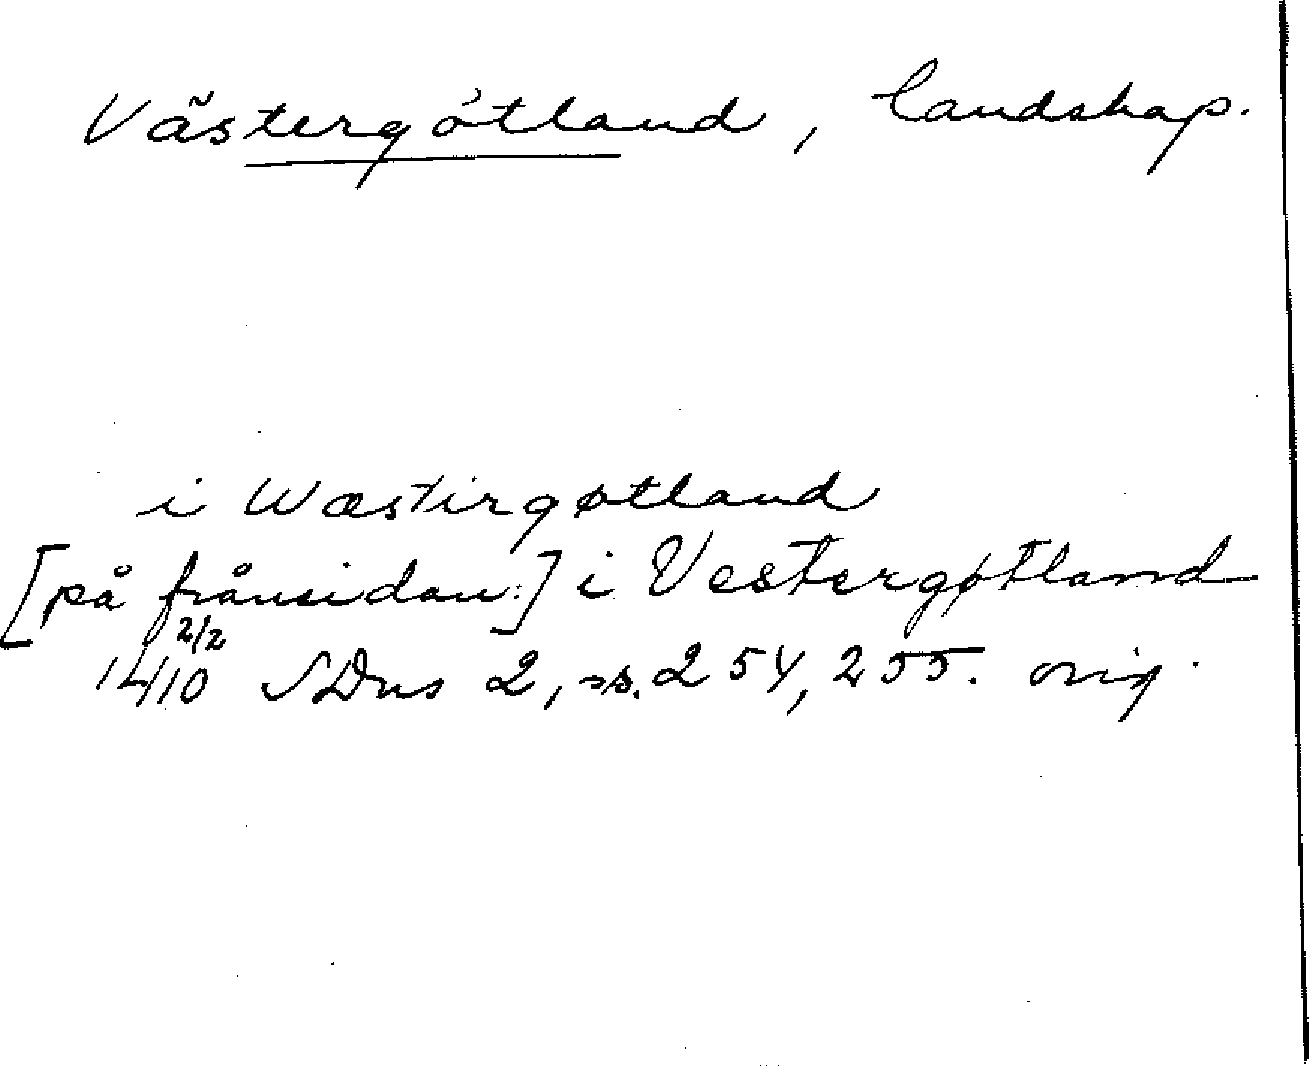 Västergötland, landskap.
i Wæstirgøtland
[på frånsidan:] i Vestergøtland
2/2
14/10 SDns 2, ss. 254, 255. orig.